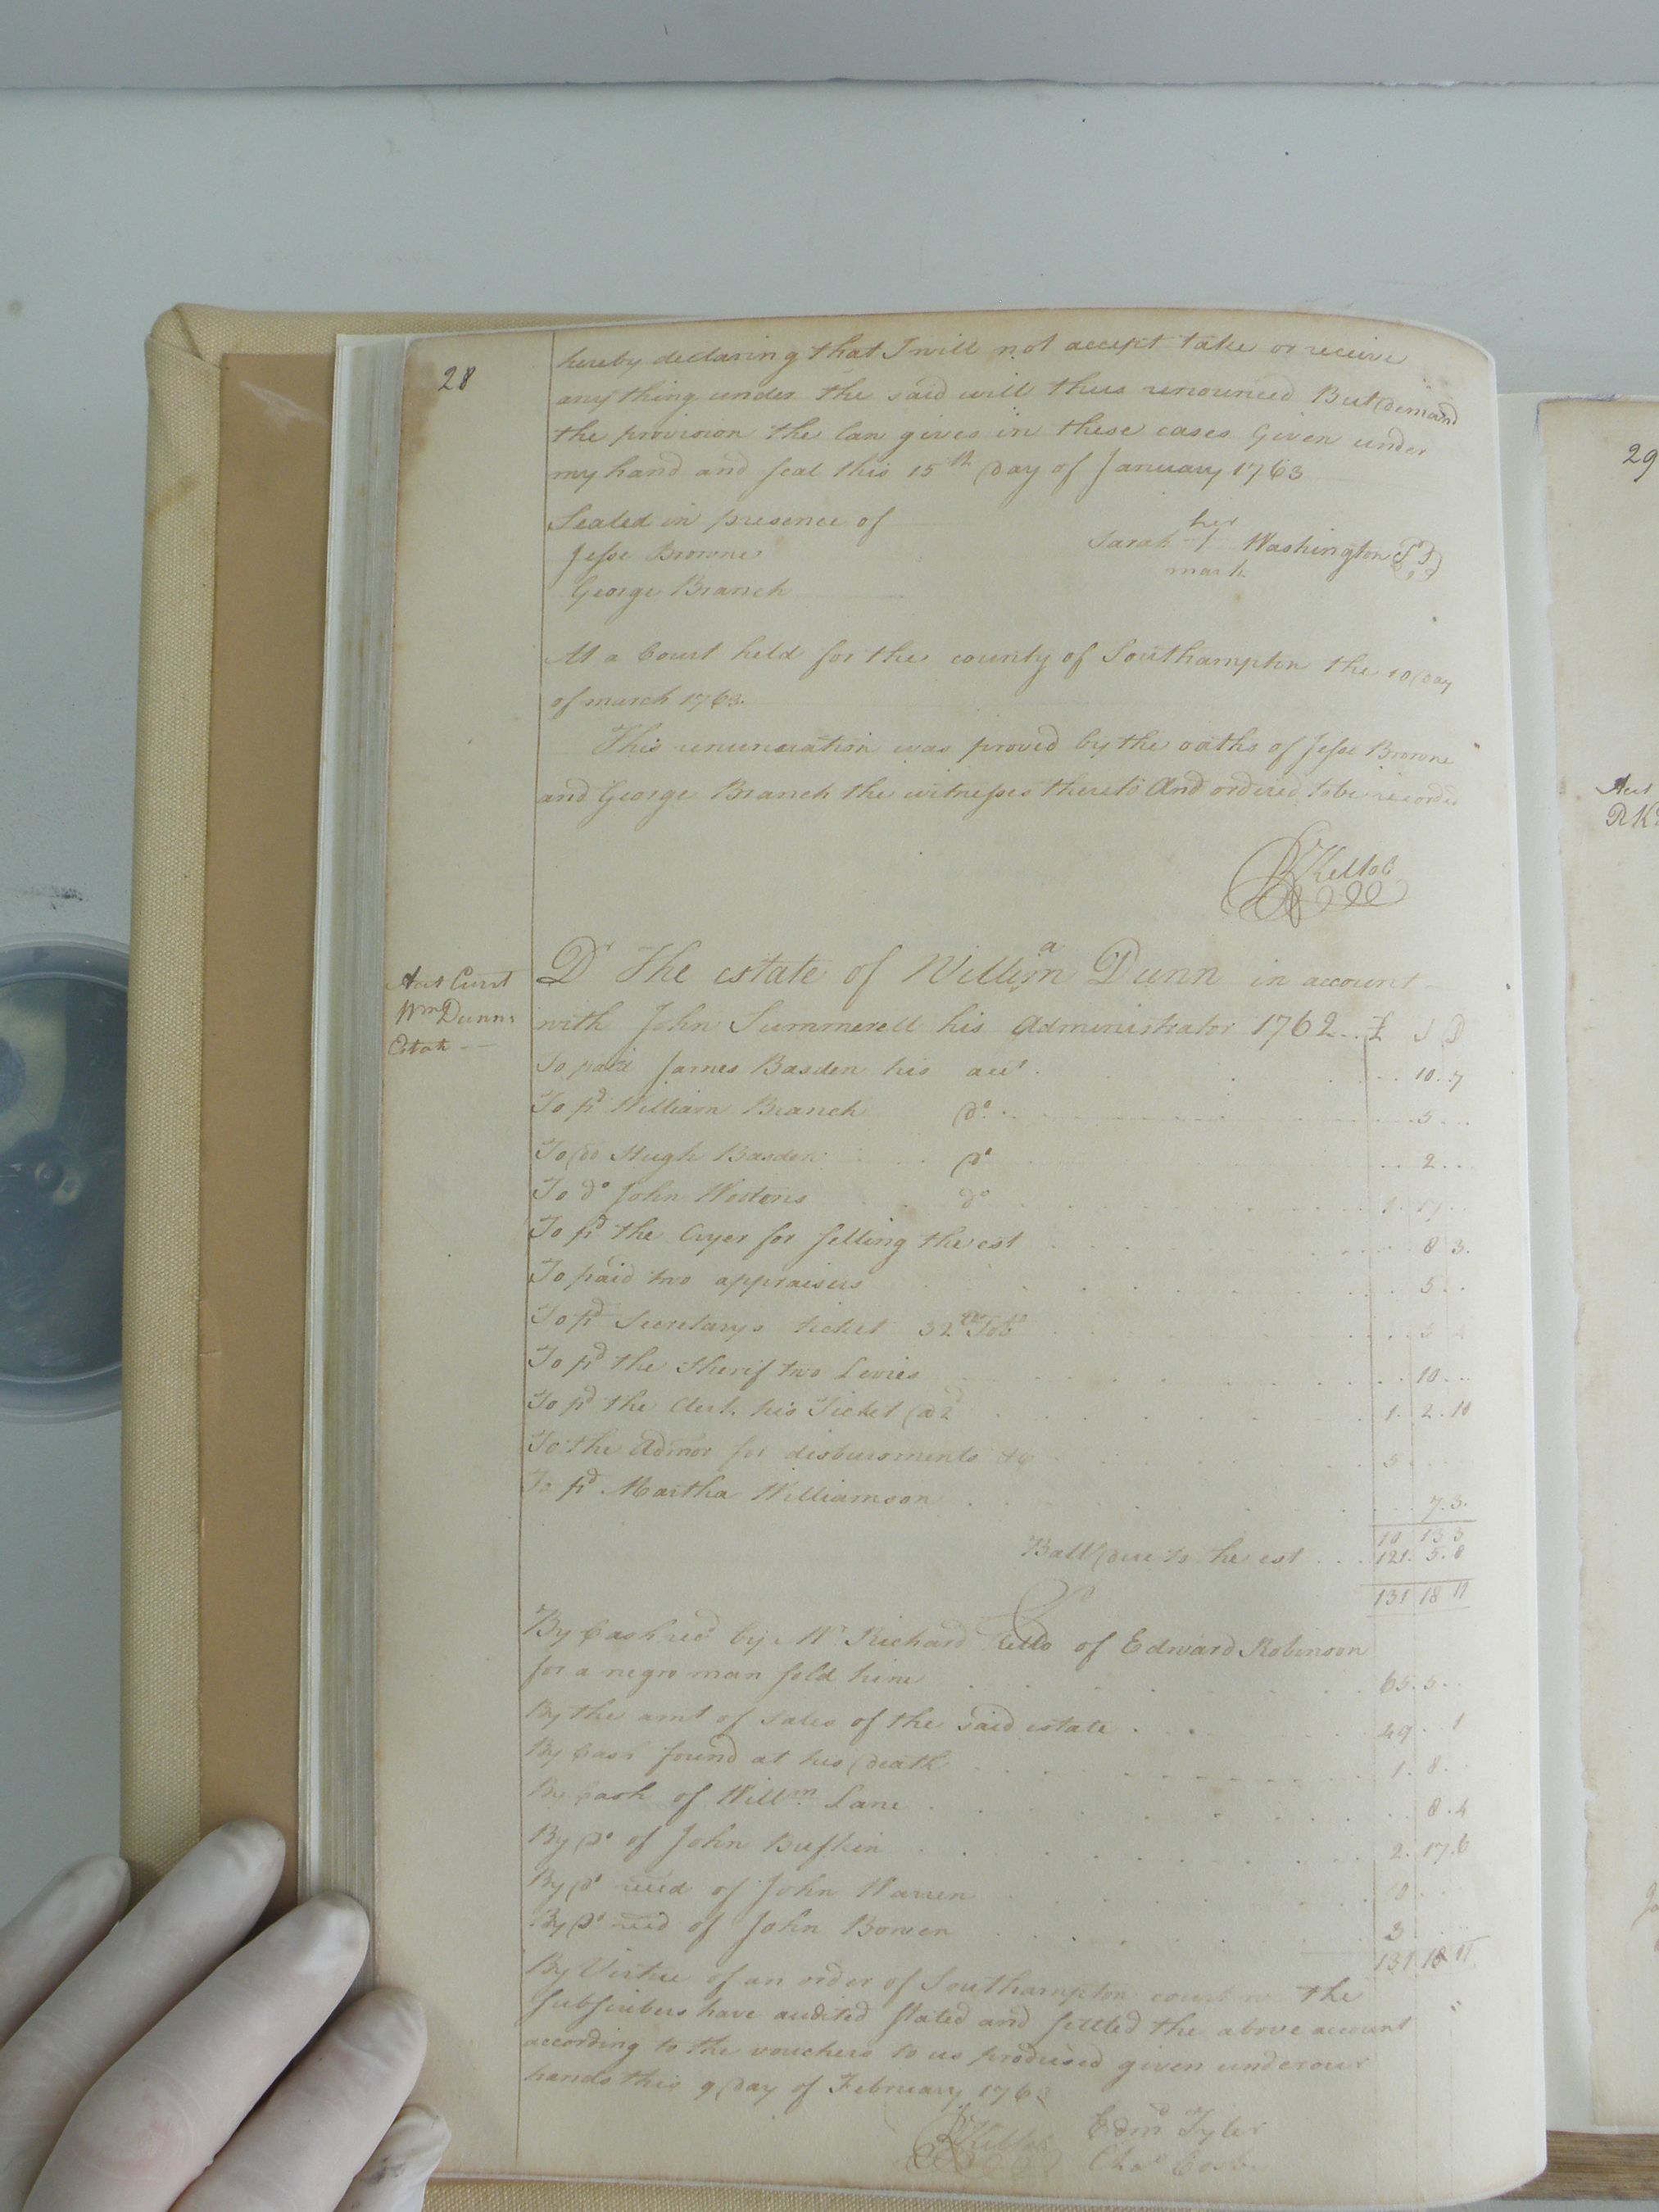 28
hereby declaring that I will not accept take or receive
any thing under the said will thus renounced But demand
the provision the law gives in these cases Given under
my hand and seal this 15th Day of January 1763
Sealed in presence of
her
Jesse Browne
Sarah Washington
mark
George Branch
At a Court held for the county of Southampton the 10 Day
of march 1763.
This renunciation was proved by the oaths of Jesse Browne
and George Branch the witnesses thereto And ordered to be recorded
R Kello C
Acct Curt
Wm Dunns
Estate
Dr The estate of William Dunn in account
with John Summerell his Administrator 1762 .. £ S D
To paid James Basden his acct. 10..7
To pd William Branch Do 5
To Do Hugh Basden Do 2
To do John Do 1. 17
To pd the Cryer for selling the est 8 3.
To paid two appraisers 5
To pd Secretarys ticket 32 Tobo 5 4
To pd the Sherif two Levies 10
To pd the Clerk his Ticket 1. 2. 10
To the Admor for disbursments &c 5
To pd Martha Williamson 7.3.
10 13 3
Ball due to the est 121. 5. 8
131 18 11
Cr
By Cash recd by Mr Richard Kello of Edward Robinson
for a negro man sold him 65. 5.
By the amt of sales of the said estate 49 . . 1
By Cash found at his Death 1. 8.
By Cash of Willm Lane 8. 4
By Do of John Bufkin 2. 17. 6
By Do recd of John Warren
By Do recd of John Bowen 3
131 18 11
By Virtue of an order of Southampton court we the
subscribers have audited stated and settled the above account
according to the vouchers to us produced given under our
hands this 9 Day of February 1763
R Kello
Edmd Tyler
Chas
29
Acct
R K